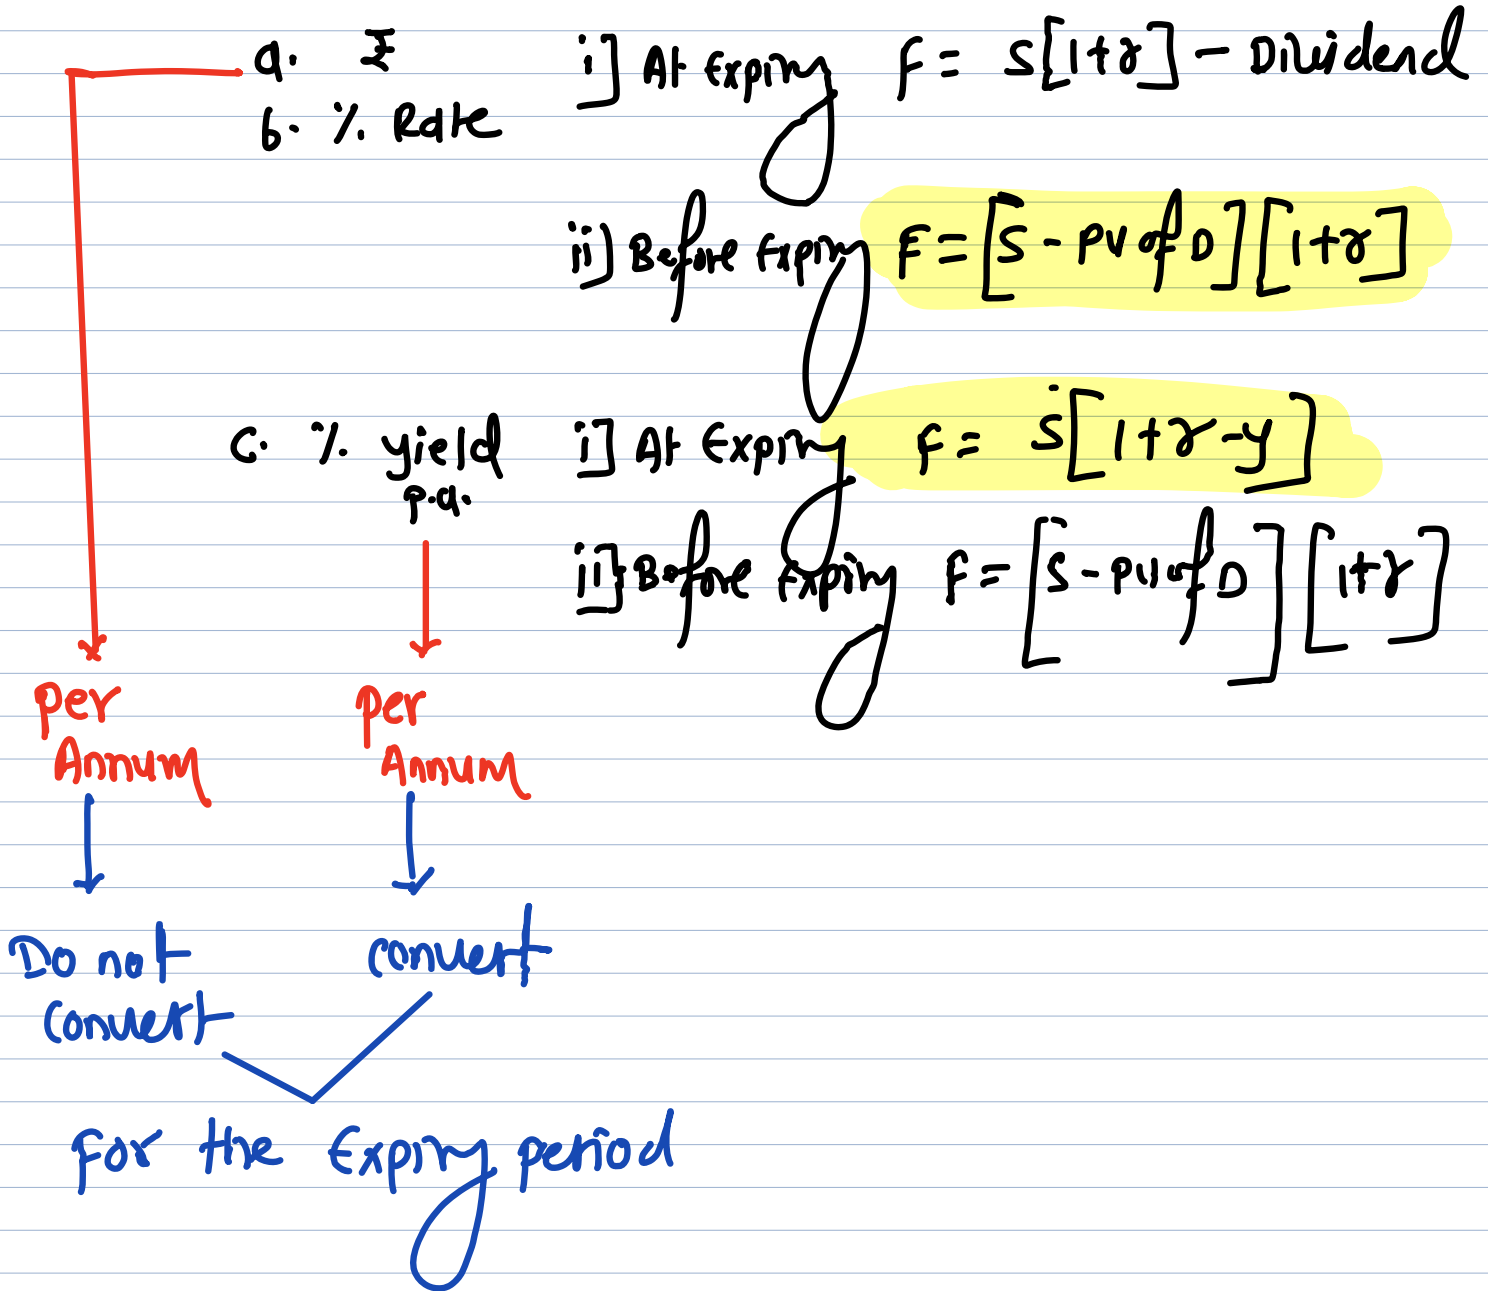 a. ₹ i] At Expiry F = S[1+r] - Dividend
b. % Rate
ii] Before Expiry F = [S - PV of D][1+r]
c. % yield p.a. i] At Expiry F = S[1+r-y]
ii] Before Expiry F = [S - PV of D][1+r]
Per Annum
Per Annum
Do not Convert
Convert
For the Expiry period